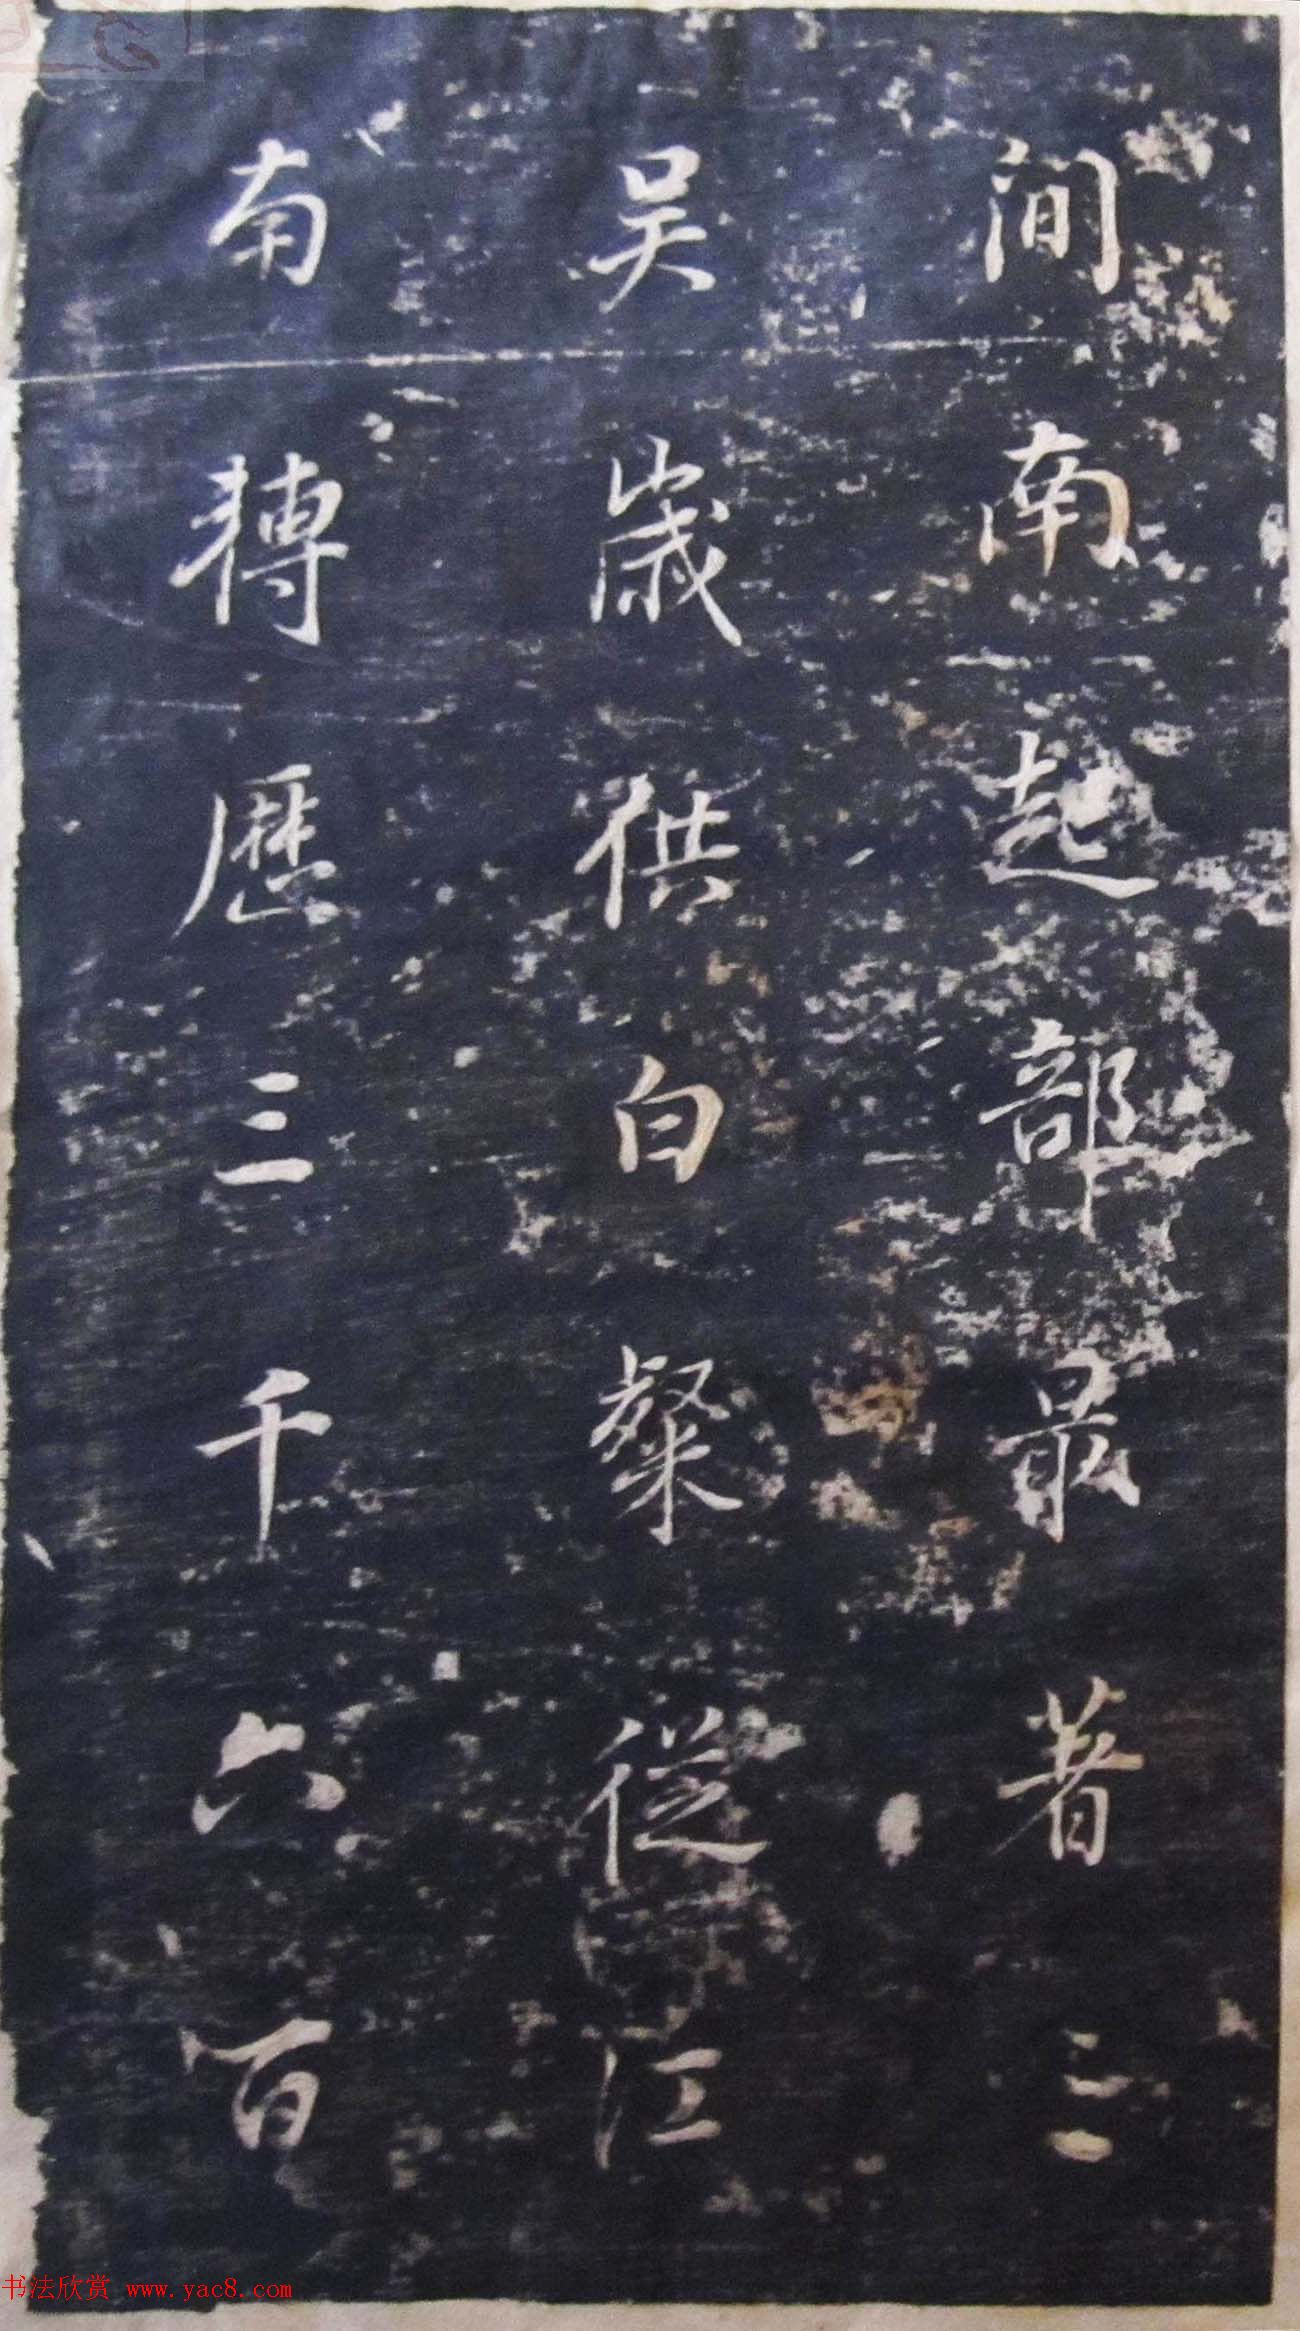 间南起部最著三
吴歲供白粲従江
南轉歷三千六百
书法欣赏 www.yac8.com